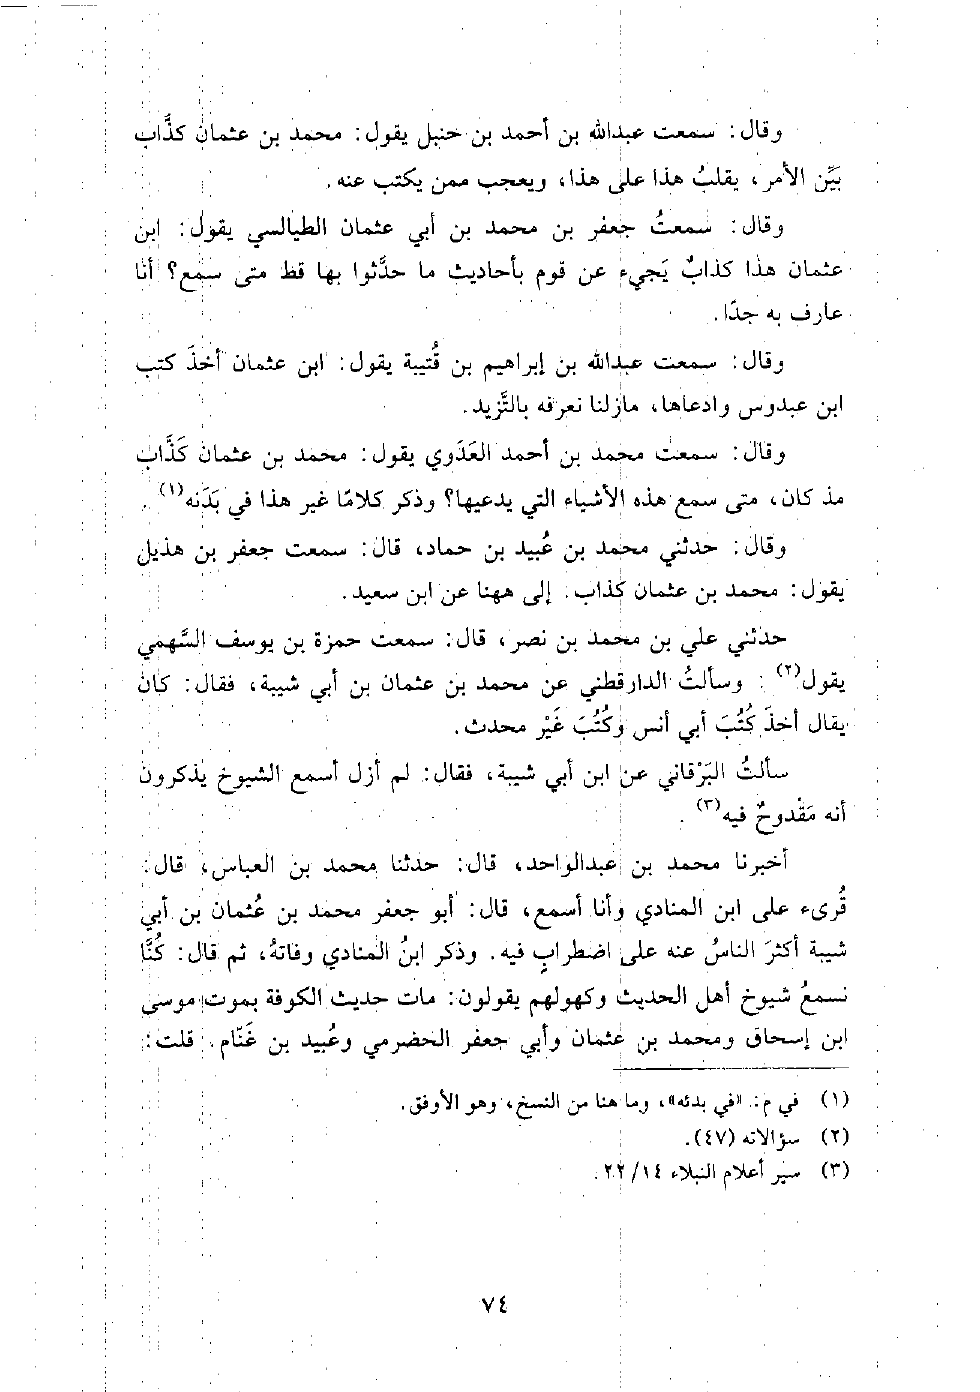 وقال: سمعت عبدالله بن أحمد بن حنبل يقول: محمد بن عثمان كذَّاب
بَيِّن الأمر، يقلبُ هذا على هذا، ويعجب ممن يكتب عنه.
وقال: سمعتُ جعفر بن محمد بن أبي عثمان الطيالسي يقول: ابن
عثمان هذا كذابٌ يَجيء عن قوم بأحاديث ما حدَّثوا بها قط متى سمع؟ أنا
عارف به جدًا.
وقال: سمعت عبدالله بن إبراهيم بن قُتيبة يقول: ابن عثمان أخذَ كتب
ابن عبدوس وادعاها، مازلنا نعرفه بالتَّزيد.
وقال: سمعت محمد بن أحمد العَدَوي يقول: محمد بن عثمان كَذَّاب
مذ كان، متى سمع هذه الأشياء التي يدعيها؟ وذكر كلامًا غير هذا في بَدَنه(١).
وقال: حدثني محمد بن عُبيد بن حماد، قال: سمعت جعفر بن هذيل
يقول: محمد بن عثمان كذاب. إلى ههنا عن ابن سعيد.
حدثني علي بن محمد بن نصر، قال: سمعت حمزة بن يوسف السَّهمي
يقول(٢): وسألتُ الدارقطني عن محمد بن عثمان بن أبي شيبة، فقال: كان
يقال أخذَ كُتُبَ أبي أنس وكُتُبَ غَيْر محدث.
سألتُ البَرْقاني عن ابن أبي شيبة، فقال: لم أزل أسمع الشيوخ يذكرون
أنه مَقْدوحٌ فيه(٣).
أخبرنا محمد بن عبدالواحد، قال: حدثنا محمد بن العباس، قال:
قُرىء على ابن المنادي وأنا أسمع، قال: أبو جعفر محمد بن عُثمان بن أبي
شيبة أكثرَ الناسُ عنه على اضطرابٍ فيه. وذكر ابنُ المنادي وفاتهُ، ثم قال: كُنَّا
نسمعُ شيوخ أهل الحديث وكهولهم يقولون: مات حديث الكوفة بموت موسى
ابن إسحاق ومحمد بن عثمان وأبي جعفر الحضرمي وعُبيد بن غَنَّام. قلت:
(١) في م: «في بدئه»، وما هنا من النسخ، وهو الأوفق.
(٢) سؤالاته (٤٧).
(٣) سير أعلام النبلاء ١٤/ ٢٢.
٧٤